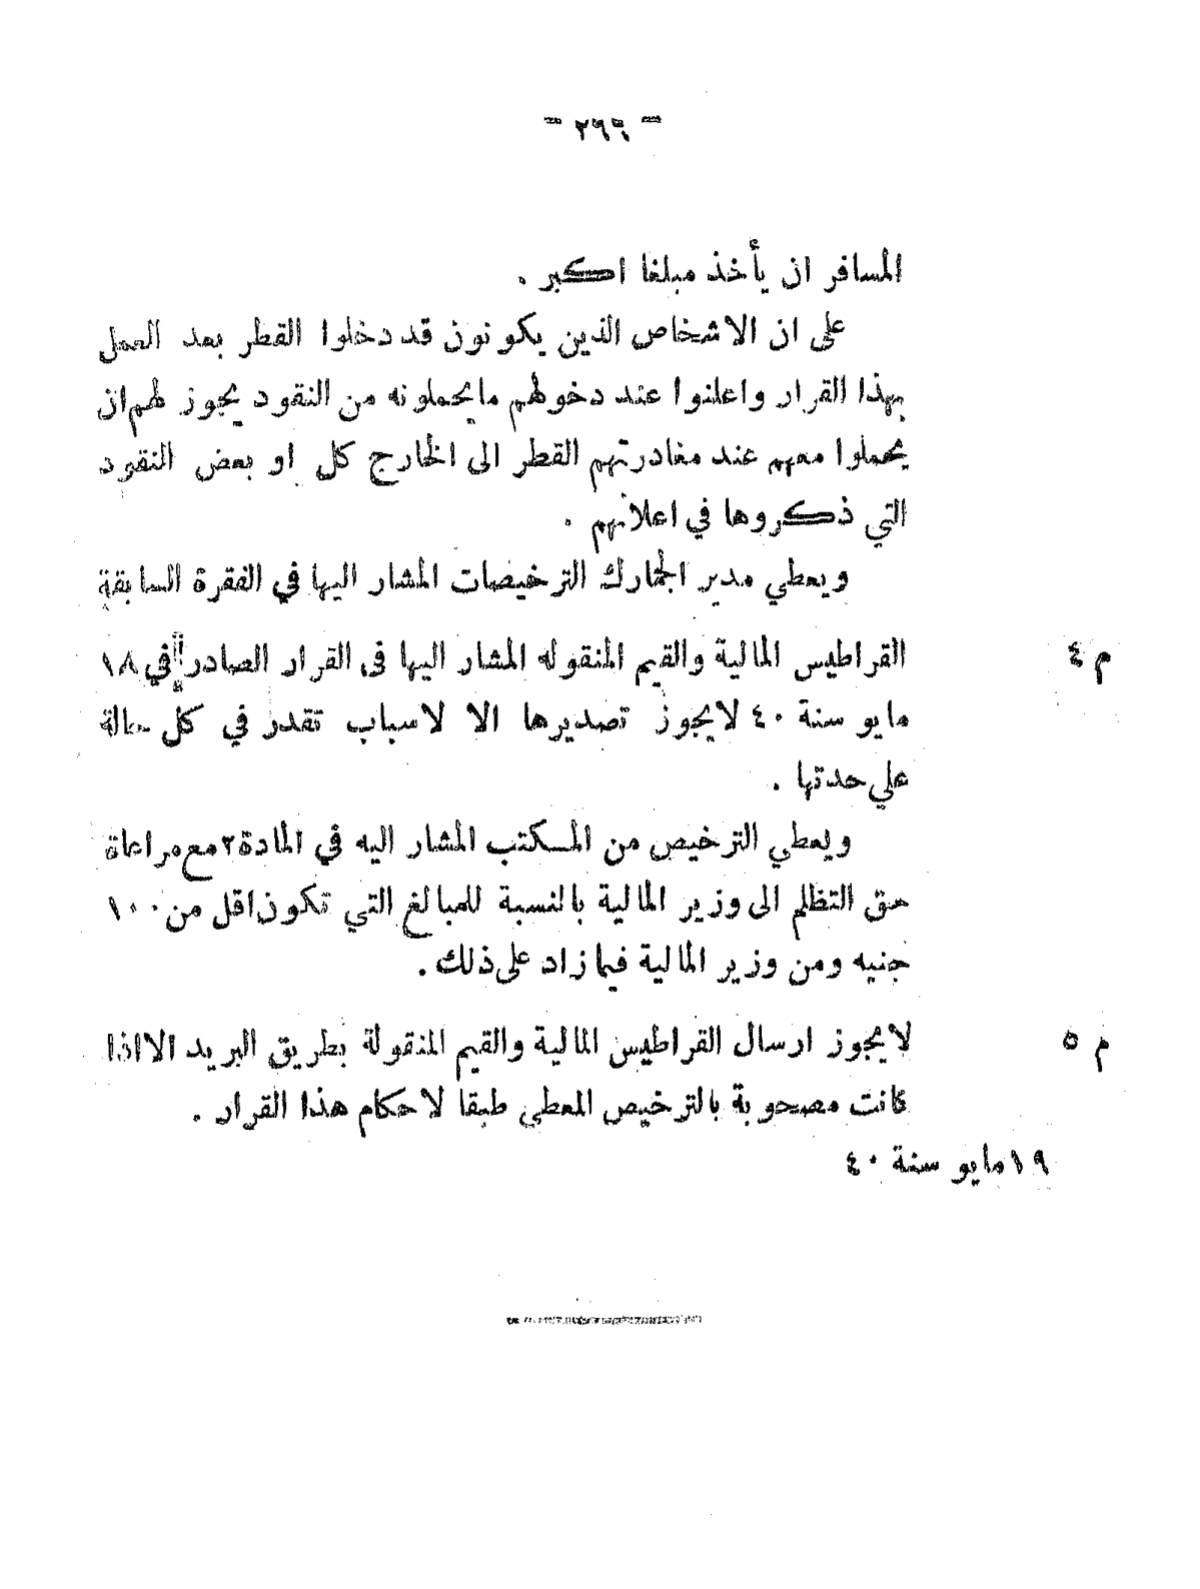 - ٢٩٦ -
المسافر ان يأخذ مبلغا اكبر .
على ان الاشخاص الذين يكونون قد دخلوا القطر بعد العمل
بهذا القرار واعلنوا عند دخولهم مايحملونه من النقود يجوز لهم ان
يحملوا معهم عند مغادرتهم القطر الى الخارج كل او بعض النقود
التي ذكروها في اعلانهم .
ويعطي مدير الجمارك الترخيصات المشار اليها في الفقرة السابقة
م ٤ القراطيس المالية والقيم المنقوله المشار اليها فى القرار الصادر في ١٨
مايو سنة ٤٠ لايجوز تصديرها الا لاسباب تقدر في كل حالة
علي حدتها .
ويعطي الترخيص من المكتب المشار اليه في المادة ٢ مع مراعاة
حق التظلم الى وزير المالية بالنسبة للمبالغ التي تكون اقل من ١٠٠
جنيه ومن وزير المالية فيما زاد على ذلك .
م ٥ لايجوز ارسال القراطيس المالية والقيم المنقولة بطريق البريد الا اذا
كانت مصحوبة بالترخيص المعطى طبقا لاحكام هذا القرار .
١٩ مايو سنة ٤٠